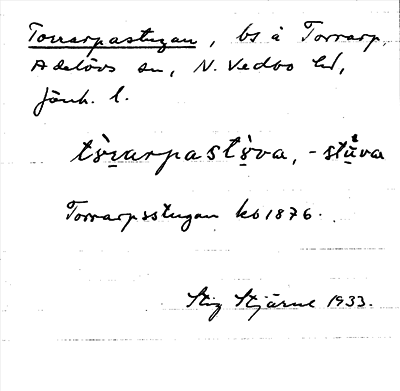 Torrarpastugan, bs å Torrarp,
Adelövs sn, N. Vedbo hd,
Jönk. l.
tòrarpastò̤va, -stu̇̀va
Torrarpsstugan kb 1876.
Stig Stjärne 1933.